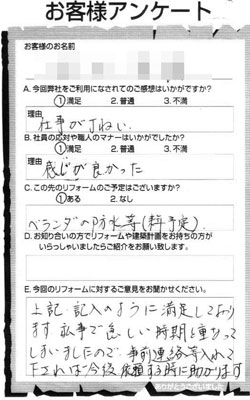 お客様アンケート
お客様のお名前
A. 今回弊社をご利用になされてのご感想はいかがですか?
①満足 2. 普通 3. 不満
理由
仕事がていねい
B. 社員の応対や職人のマナーはいかがでしたか?
①満足 2. 普通 3. 不満
理由
感じが良かった
C. この先のリフォームのご予定はございますか?
①ある 2. なし
ベランダの防水等(
D. お知り合いの方でリフォームや建築計画をお持ちの方が
いらっしゃいましたらご紹介をお願い致します。
E. 今回のリフォームに対するご意見をお聞かせください。
上記、記入のように満足しており
ます 私事で忙しい時期と重なって
しまいましたので、事前連絡等入れて
下されば今後依頼する時に助かります
ありがとうございました